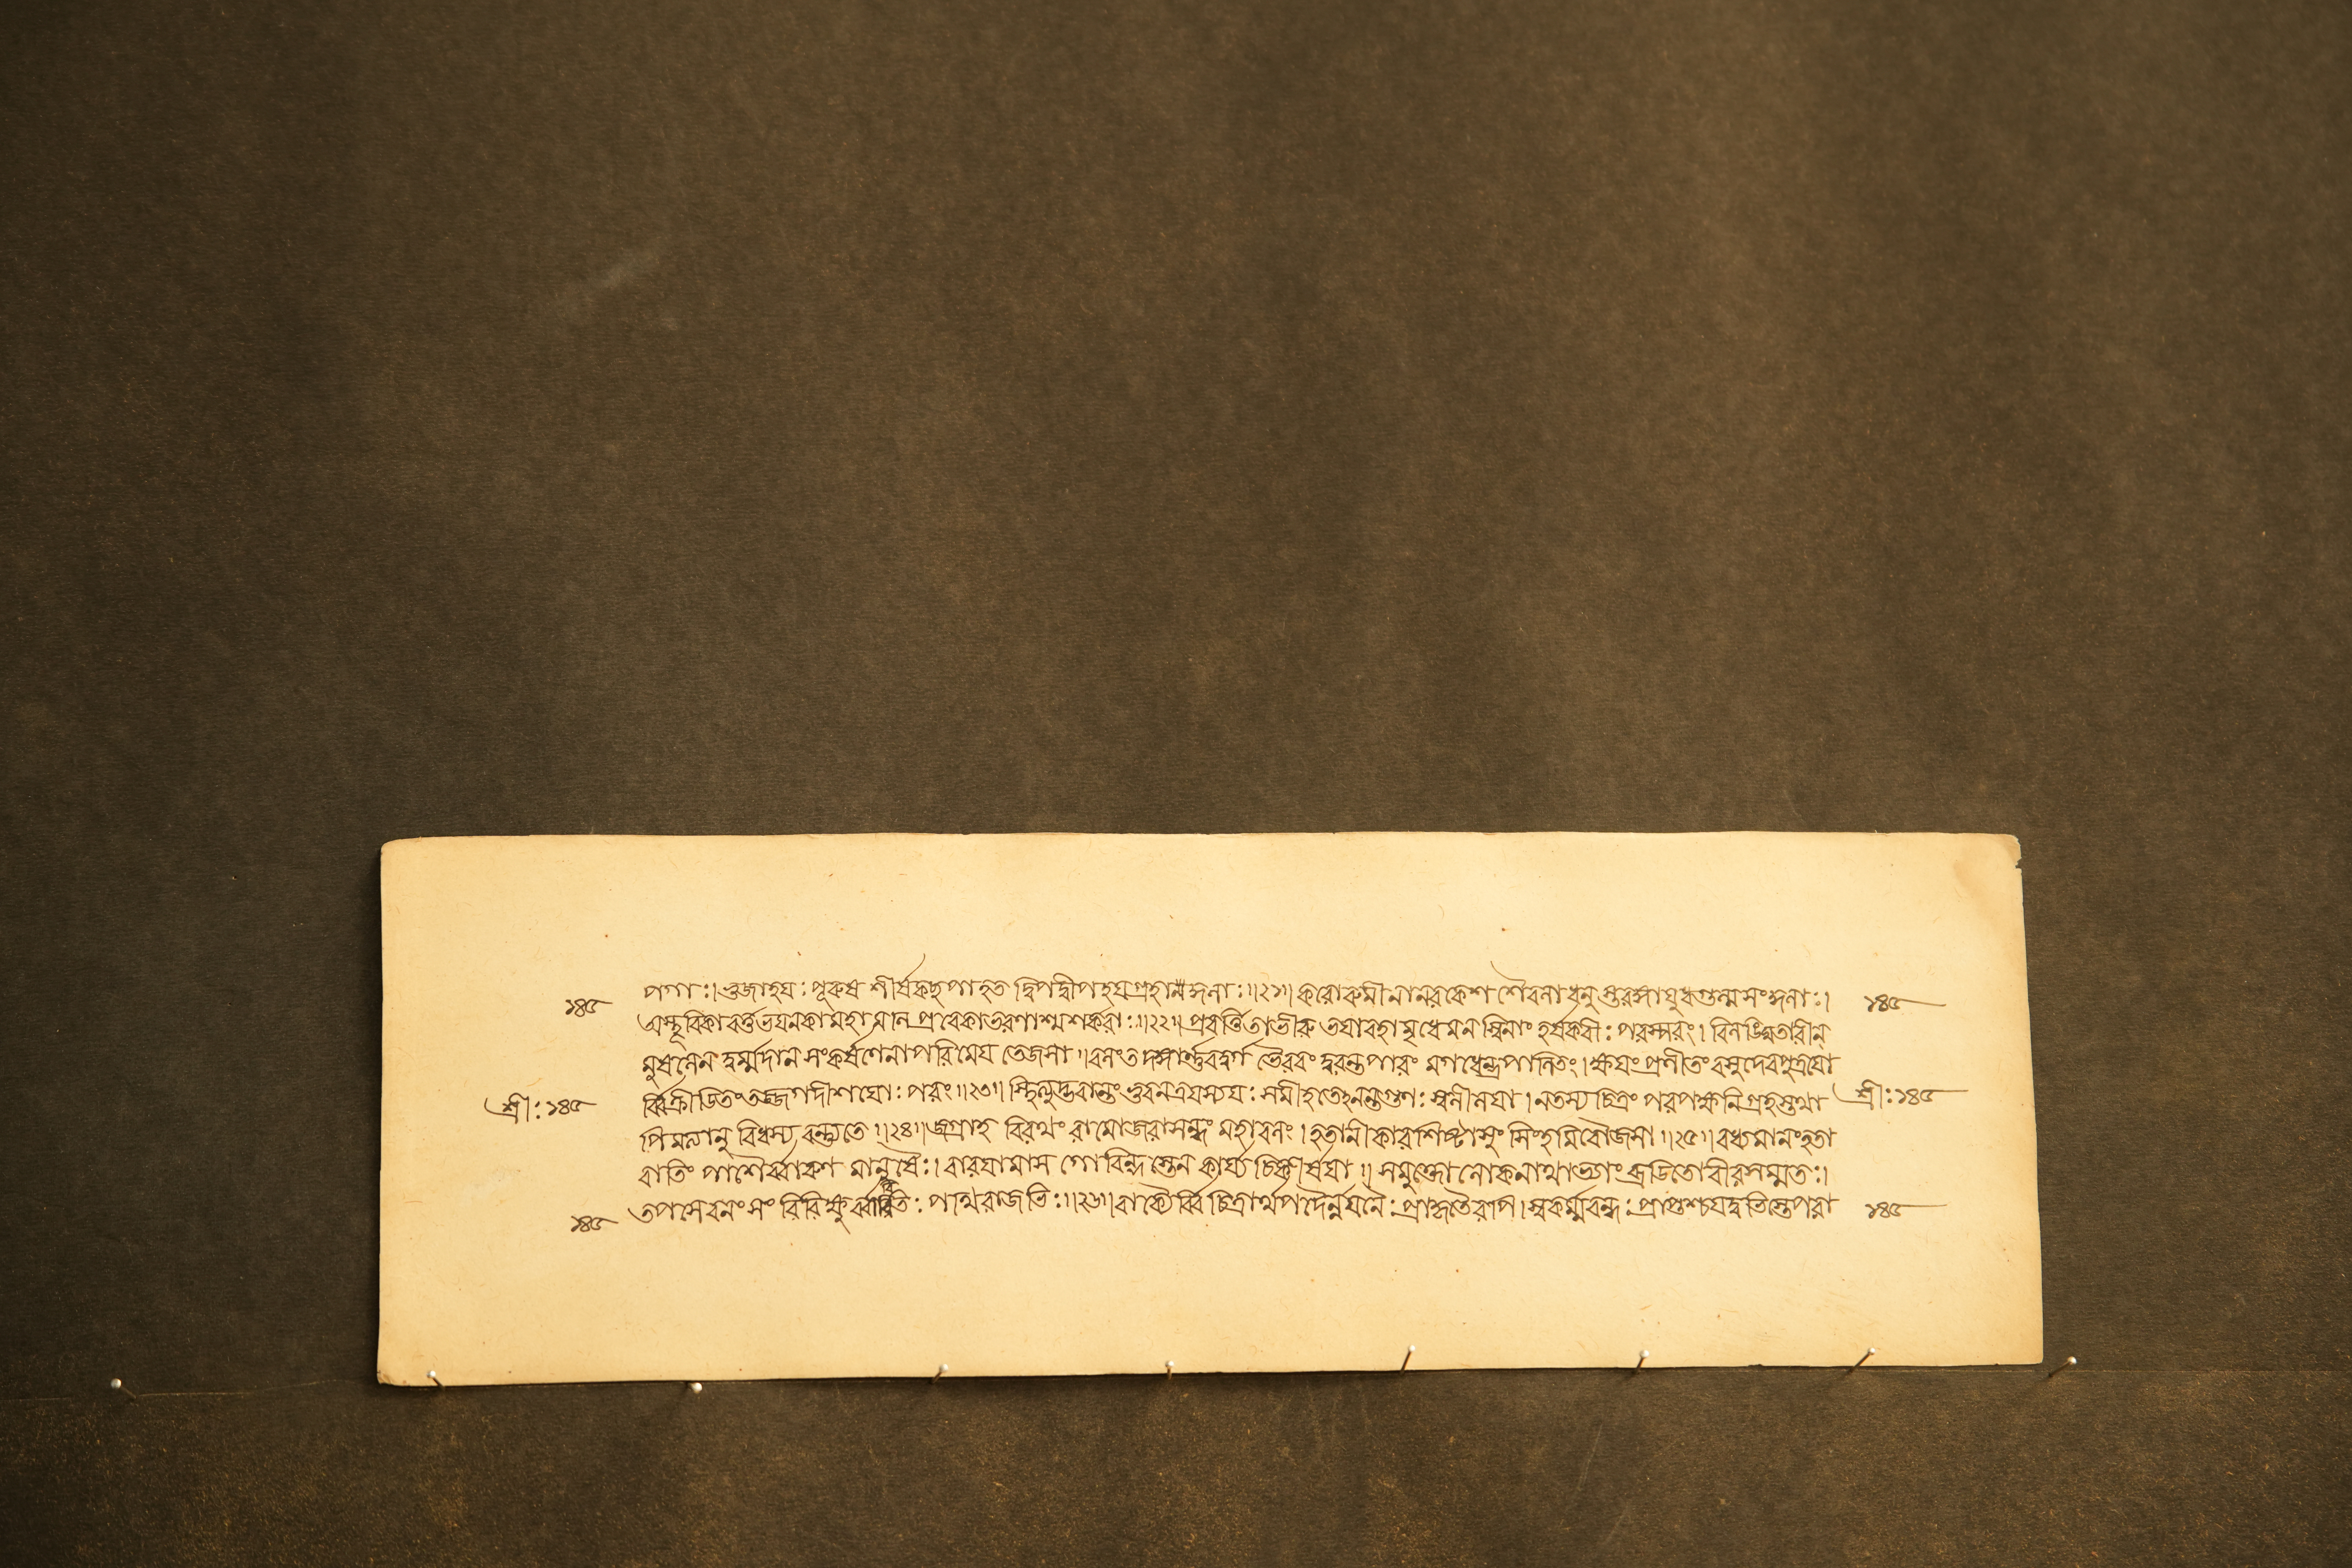 ১৪৫ পগাঃ। ভুজাহয়ঃ পূরুষ শীর্ষকচ্ছপাহত দ্বিপদ্বীপহয়গ্রহাকুলাঃ॥২১॥ করোরুমীনানরকেশ শৈবলাধনুস্তরঙ্গায়ুধগুল্ম সংকুলাঃ। ১৪৫
অচ্ছূরিকাবর্ত্তভয়ানকামহামনি প্রবেকাভরণাশ্মশর্করাঃ॥২২॥ প্রবর্ত্তিতাভীরু ভয়াবহামৃধেমনস্বিনাং হর্ষকরীঃ পরস্পরং। বিনিঘ্নতারীন্
মুষলেন দুর্ম্মদান সংকর্ষণেনাপরিমেয় তেজসা। বলংতদঙ্গার্ণ্ণবদুর্গ ভৈরবং দুরন্তপারং মগধেন্দ্রপালিতং। ক্ষয়ংপ্রণীতং বসুদেবপুত্রয়ো
শ্রীঃ১৪৫ র্ব্বিক্রীডিতংতজ্জগদীশয়োঃ পরং॥২৩॥ স্থিত্যুদ্ভবান্তং ভুবনত্রয়স্যযঃ সমীহতেঽনন্তগুণঃ স্বলীলয়া। নতস্য চিত্রং পরপক্ষনিগ্রহস্তথা শ্রীঃ১৪৫
পিমর্ত্যানু বিধস্য বর্ন্ন্যতে॥২৪॥ জগ্রাহ বিরথং রামোজরাসন্ধং মহাবলং। হতানীকাবশিষ্টাসুং সিংহমিবৌজসা॥২৫॥ বধ্যমানংহতা
রাতিং পাশৈর্ব্বারুণ মানুষৈঃ। বারয়ামাস গোবিন্দ স্তেন কার্য্য চিকীর্ষয়া॥ সমুক্তো লোকনাথাভ্যাং ব্রীডিতোবীরসম্মতঃ।
১৪৫ তপসেবনং সং পথিরাজভিঃ॥২৬॥ বাক্যৈর্ব্বিচিত্রার্থপদৈর্ন্নয়নৈঃ প্রাকৃতৈরপি। স্বকর্ম্মবন্ধঃ প্রাপ্তশ্চযদুভিস্তেপরা ১৪৫